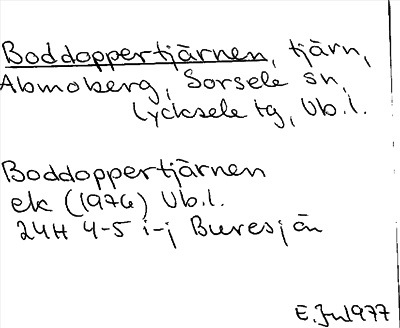 Boddoppertjärnen, tjärn,
Abmoberg, Sorsele sn,
Lycksele tg, Vb.l.
Boddoppertjärnen
ek (1976) Vb.l.
24H 4-5 i-j Buresjön
E.Ju 1977